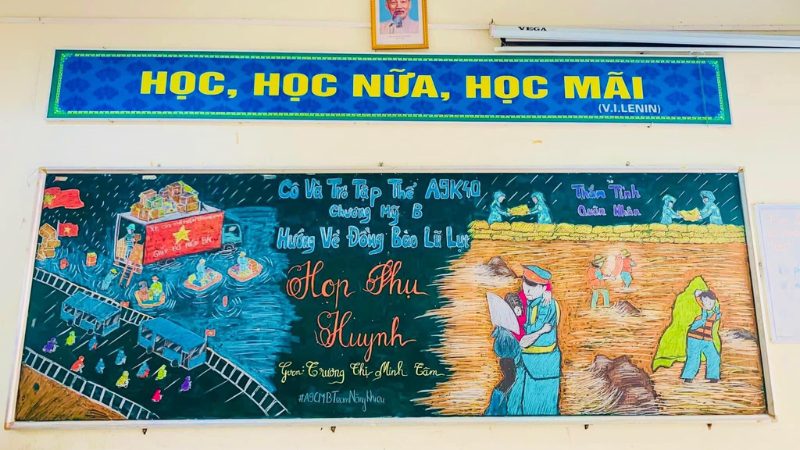 VEGA
HỌC, HỌC NỮA, HỌC MÃI
(V.I.LENIN)
Cô Và Trò Tập Thể A9K40
Chương Mỹ B
Hướng Về Đồng Bào Lũ Lụt
Thắm Tình
Quân Nhân
Họp Phụ
Huynh
Gvcn: Trương Thị Minh Tâm
#A9CMBTeamNăngNhiều